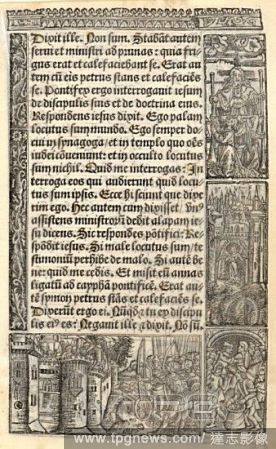 Dixit ille. Non sum. Stabāt autem
serui et ministri ad prunas: quia fri-
gus erat et calefaciebant se. Erat au-
tem cū eis petrus stans et calefaciēs
se. Pontifex ergo interrogauit iesum
de discipulis suis et de doctrina eius.
Respondens iesus dixit. Ego palam
locutus sum mundo. Ego semper do-
cui in synagoga: et in templo quo oēs
iudei cōueniunt: et in occulto locutus
sum nichil. Quid me interrogas: In-
terroga eos qui audierunt quid locu-
tus sum ipsis. Ecce hi sciunt que dixe-
rim ego. Hec autem cum dixisset: vn9
assistens ministrorū dedit alapam ie-
su dicens. Sic respondes pōtifici: Re-
spōdit iesus. Si male locutus sum/te-
stimoniū perhibe de malo. Si autē be-
ne: quid me cedis. Et misit eū annas
ligatū ad caypham pontificē. Erat au-
tē symon petrus stās et calefaciēs se.
Dixerūt ergo ei. Nūqd et tu ex discipu-
lis ei9 es: Negauit ille et dixit. Nō sū.
TPG
www.tpgnews.com/ 達志影像